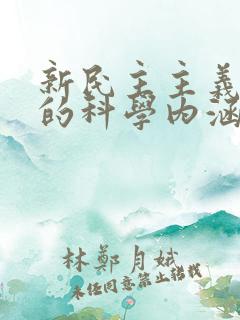 新民主主義
的科學內涵
林鄭月娥
未經同意禁止轉載